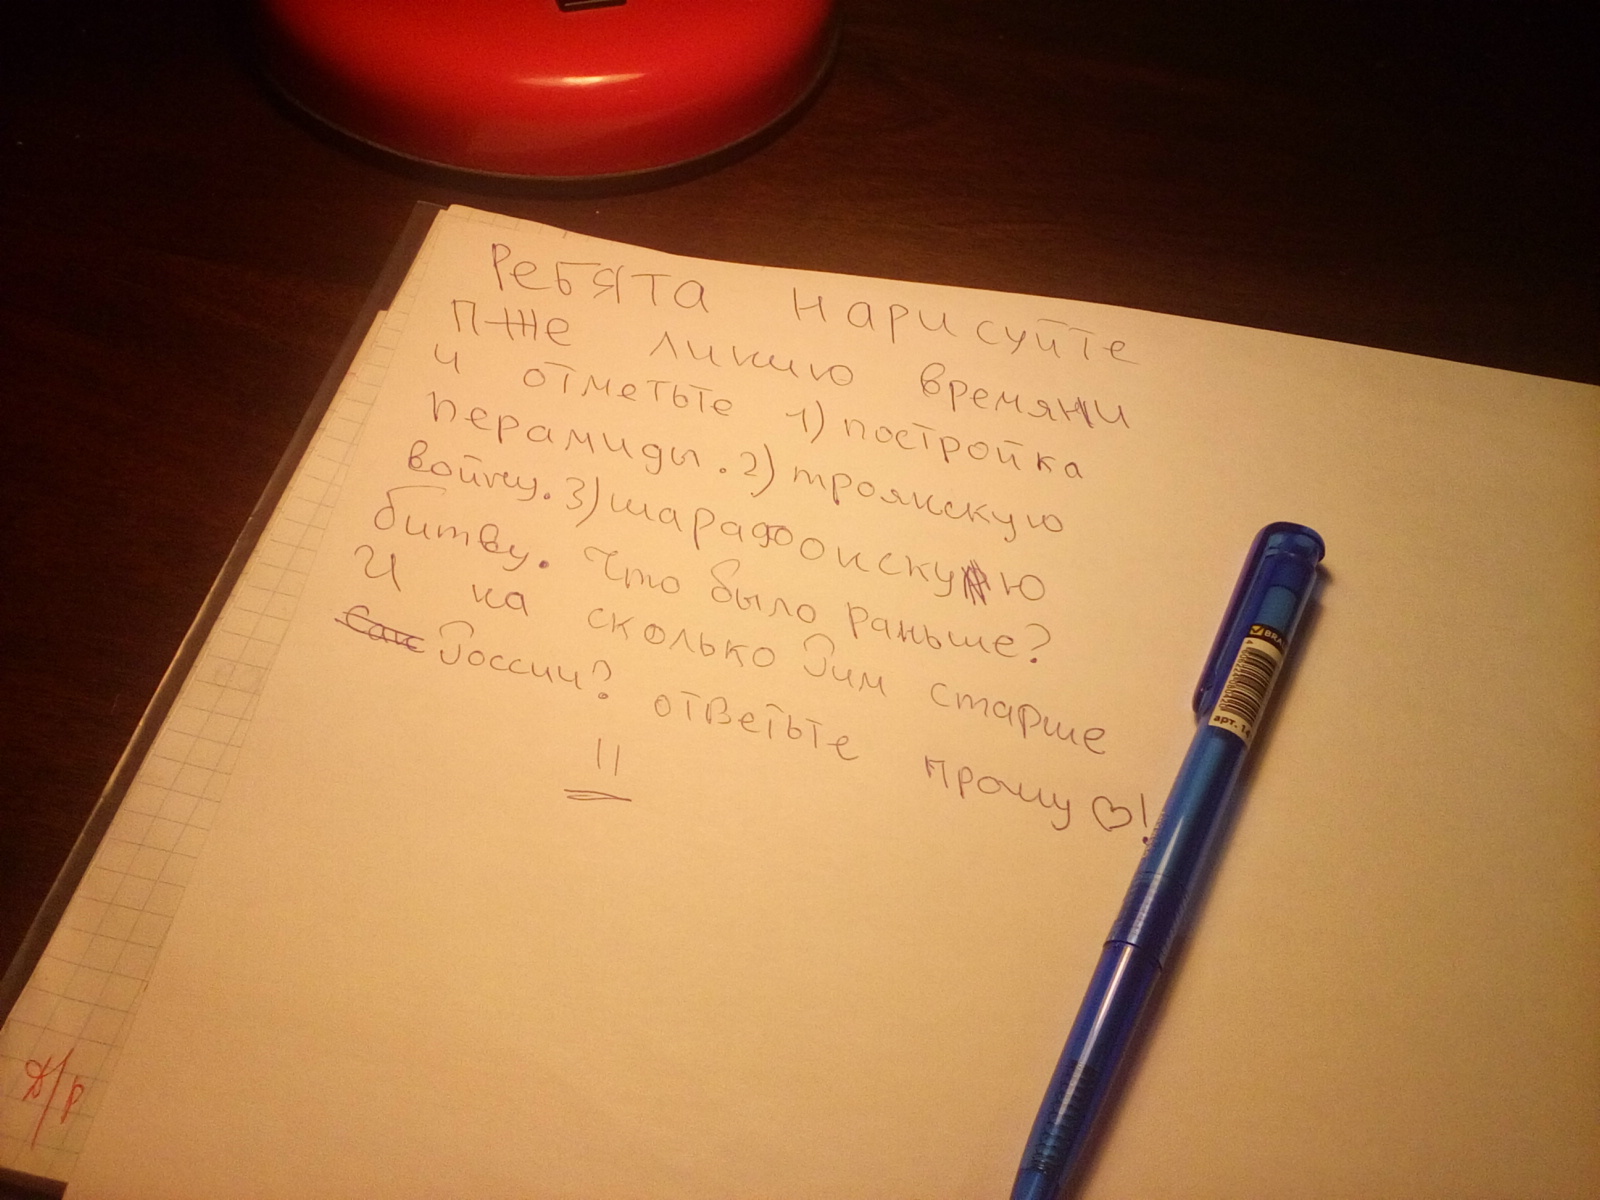 Ребята нарисуйте
п-жже линию времяни
и отметьте 1) постройка
перамиды. 2) троянскую
войну. 3) марафонскую
битву. Что было раньше?
И на сколько Рим старше
России? ответьте прошу ♡!
Д/р
арт. 14